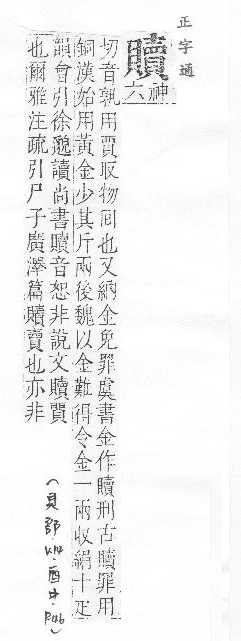 正字通
贖
神六
切音孰用賈取物囘也又納金免罪虞書金作贖刑古贖罪用
銅漢始用黃金少其斤兩後魏以金難得令金一兩收絹十疋
韻會引徐邈讀尚書贖音恕非說文贖貿
也爾雅注疏引尸子廣澤篇贖賣也亦非
(貝部.酉中.P46)